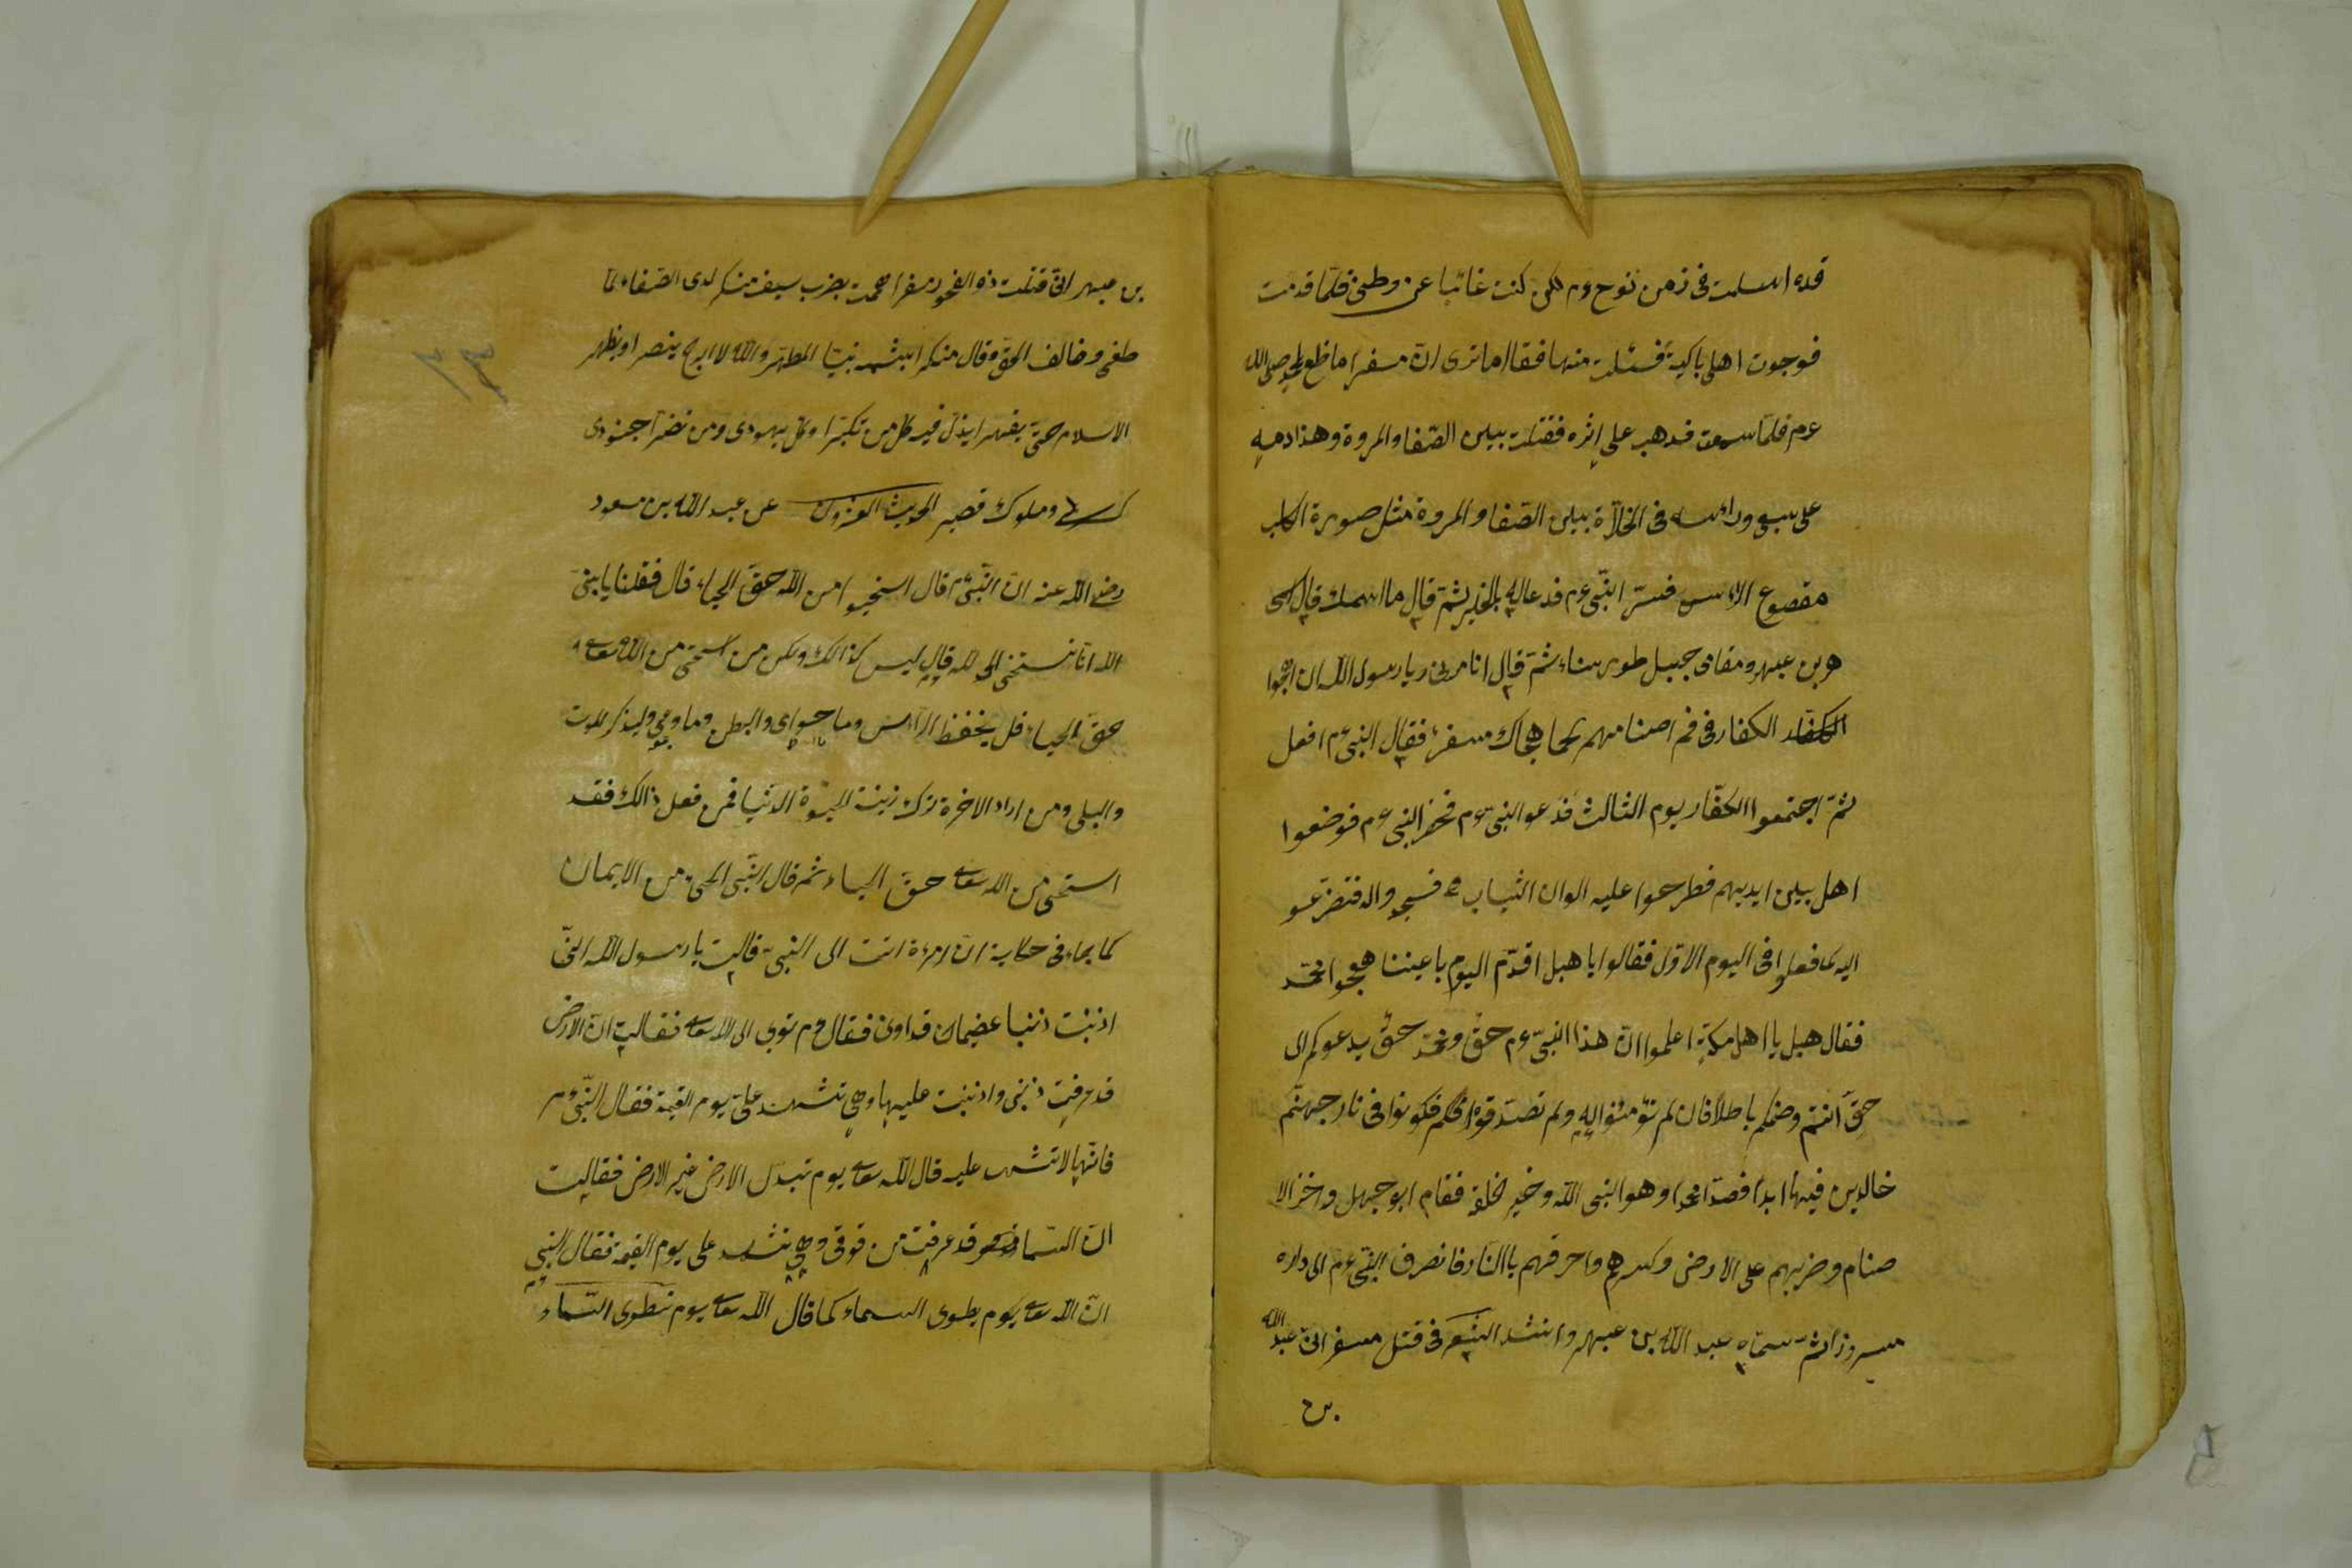 قده اسلمت فى زمن نوح عم لكن كنت غائبا عن وطنى فلما قدمت
فوجدت اهلى باكية فسئلت منها فقال اما ترى ان مسفرا ما ظع لمحمد صلى الله
عم فلما سمعت فذهب على اثره فقتلت بين الصفا والمروة وهذا دمه
على سيفى وراسه فى الخلاة بين الصفا والمروة مثل صورة الكلب
مقصوع الراس فسر النبى عم فدعا له بالخير ثم قال ما اسمك قال اسمى
هو بن عبهر ومقامى جبل طور سناء ثم قال انا مرنى يا رسول الله ان اهجوا
الكفار فى فم اصنامهم كما هجاك مسفر فقال النبى عم افعل
ثم اجتمعوا الكفار يوم الثالث فدعوا النبى عم فحضر النبى عم فوضعوا
اهل بين ايديهم فطرحوا عليه الوان الثياب فسجدوا له فتضرعوا
اليه كما فعلوا فى اليوم الاول فقالوا يا هبل اقدم اليوم باعيننا هجوا محمد
فقال هبل يا اهل مكة اعلموا ان هذا النبى عم حق ومحمد حق يدعوكم الى
حق انتم وصنمكم باطلا فان لم تؤمنوا به ولم تصدقوا فكونوا فى نار جهنم
خالدين فيها ابدا فصدقوا محمدا وهو النبى الله وخير خلقه فقام ابو جهل واخذ الا
صنام وضربهم على الارض وكسرهم واحرقهم باالنار فانصرف النبى عم الى داره
مسرورا ثم سماه عبد الله بن عبهر وانشد الشعر فى قتل مسفر انى عبد الله
بن
بن عبهر انى قتلت ذو الفجور مسفرا همت بضرب سيف منكر لدى الصفاء لما
طغى وخالف الحق وقال منكرا بشتمه نبينا المطهر والله لا ابرح ينصر او يظهر
الاسلام حتى يقهر ايذل فيه كل من تكبرا وكل يهودى ومن نصرا جنودى
كسرى وملوك قيصر الحديث العشرون عن عبد الله بن مسعود
رضى الله عنه ان النبى قال استحيوا من الله حق الحياء قال فقلنا يا نبى
الله انا نستحى الى لله قال ليس كذالك ولكن من استحى من الله تعالى
حق الحياء فليحفظ الراس وما حواى والبطن وما وعى وليذكر الموت
والبلى ومن اراد الاخرة ترك زينة الحيوة الدنيا فمن فعل ذالك فقد
استحى من الله تعالى حق الحياء ثم قال النبى الحى من الايمان
كما جاء فى حكاية ان امرءة اتت الى النبى قالت يا رسول الله انى
اذنبت ذنبا عضيما فداونى فقال عم توبى الى الله تعالى فقالت ان الارض
قد عرفت ذنبى واذنبت عليها وهى تشهد على يوم القيمة فقال النبى عم
فانها لا تشهد عليه قال الله تعالى يوم تبدل الارض غير الارض فقالت
ان السماء قد عرفت من فوقى وهى تشهد على يوم القيمة فقال النبى
ان الله تعالى يوم يطوى السماء كما قال الله تعالى يوم نطوى السماء